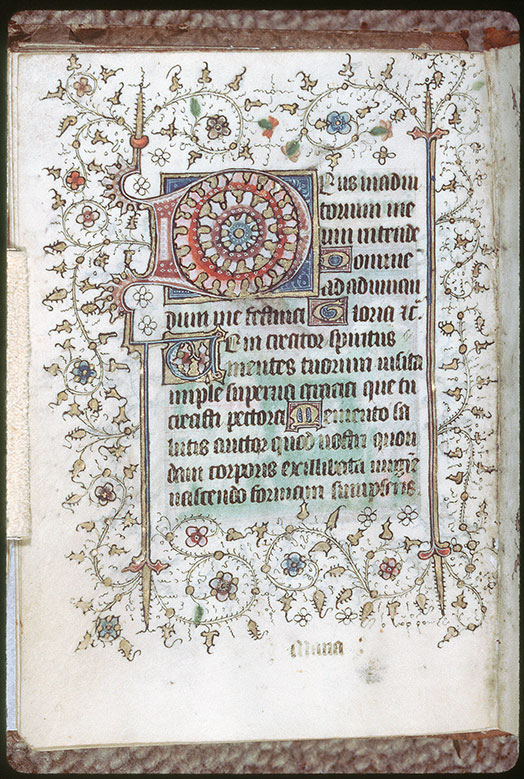 Deus in adiu
torium me
um intende
Domine
ad adiuuan
dum me festina Gloria
Veni creator spiritus
mentes tuorum uisita
imple superna gracia que tu
creasti pectora Memento sa
lutis auctor quod nostri quon
dam corporis ex illibata uirgīe
nascendo formam sumpseris.